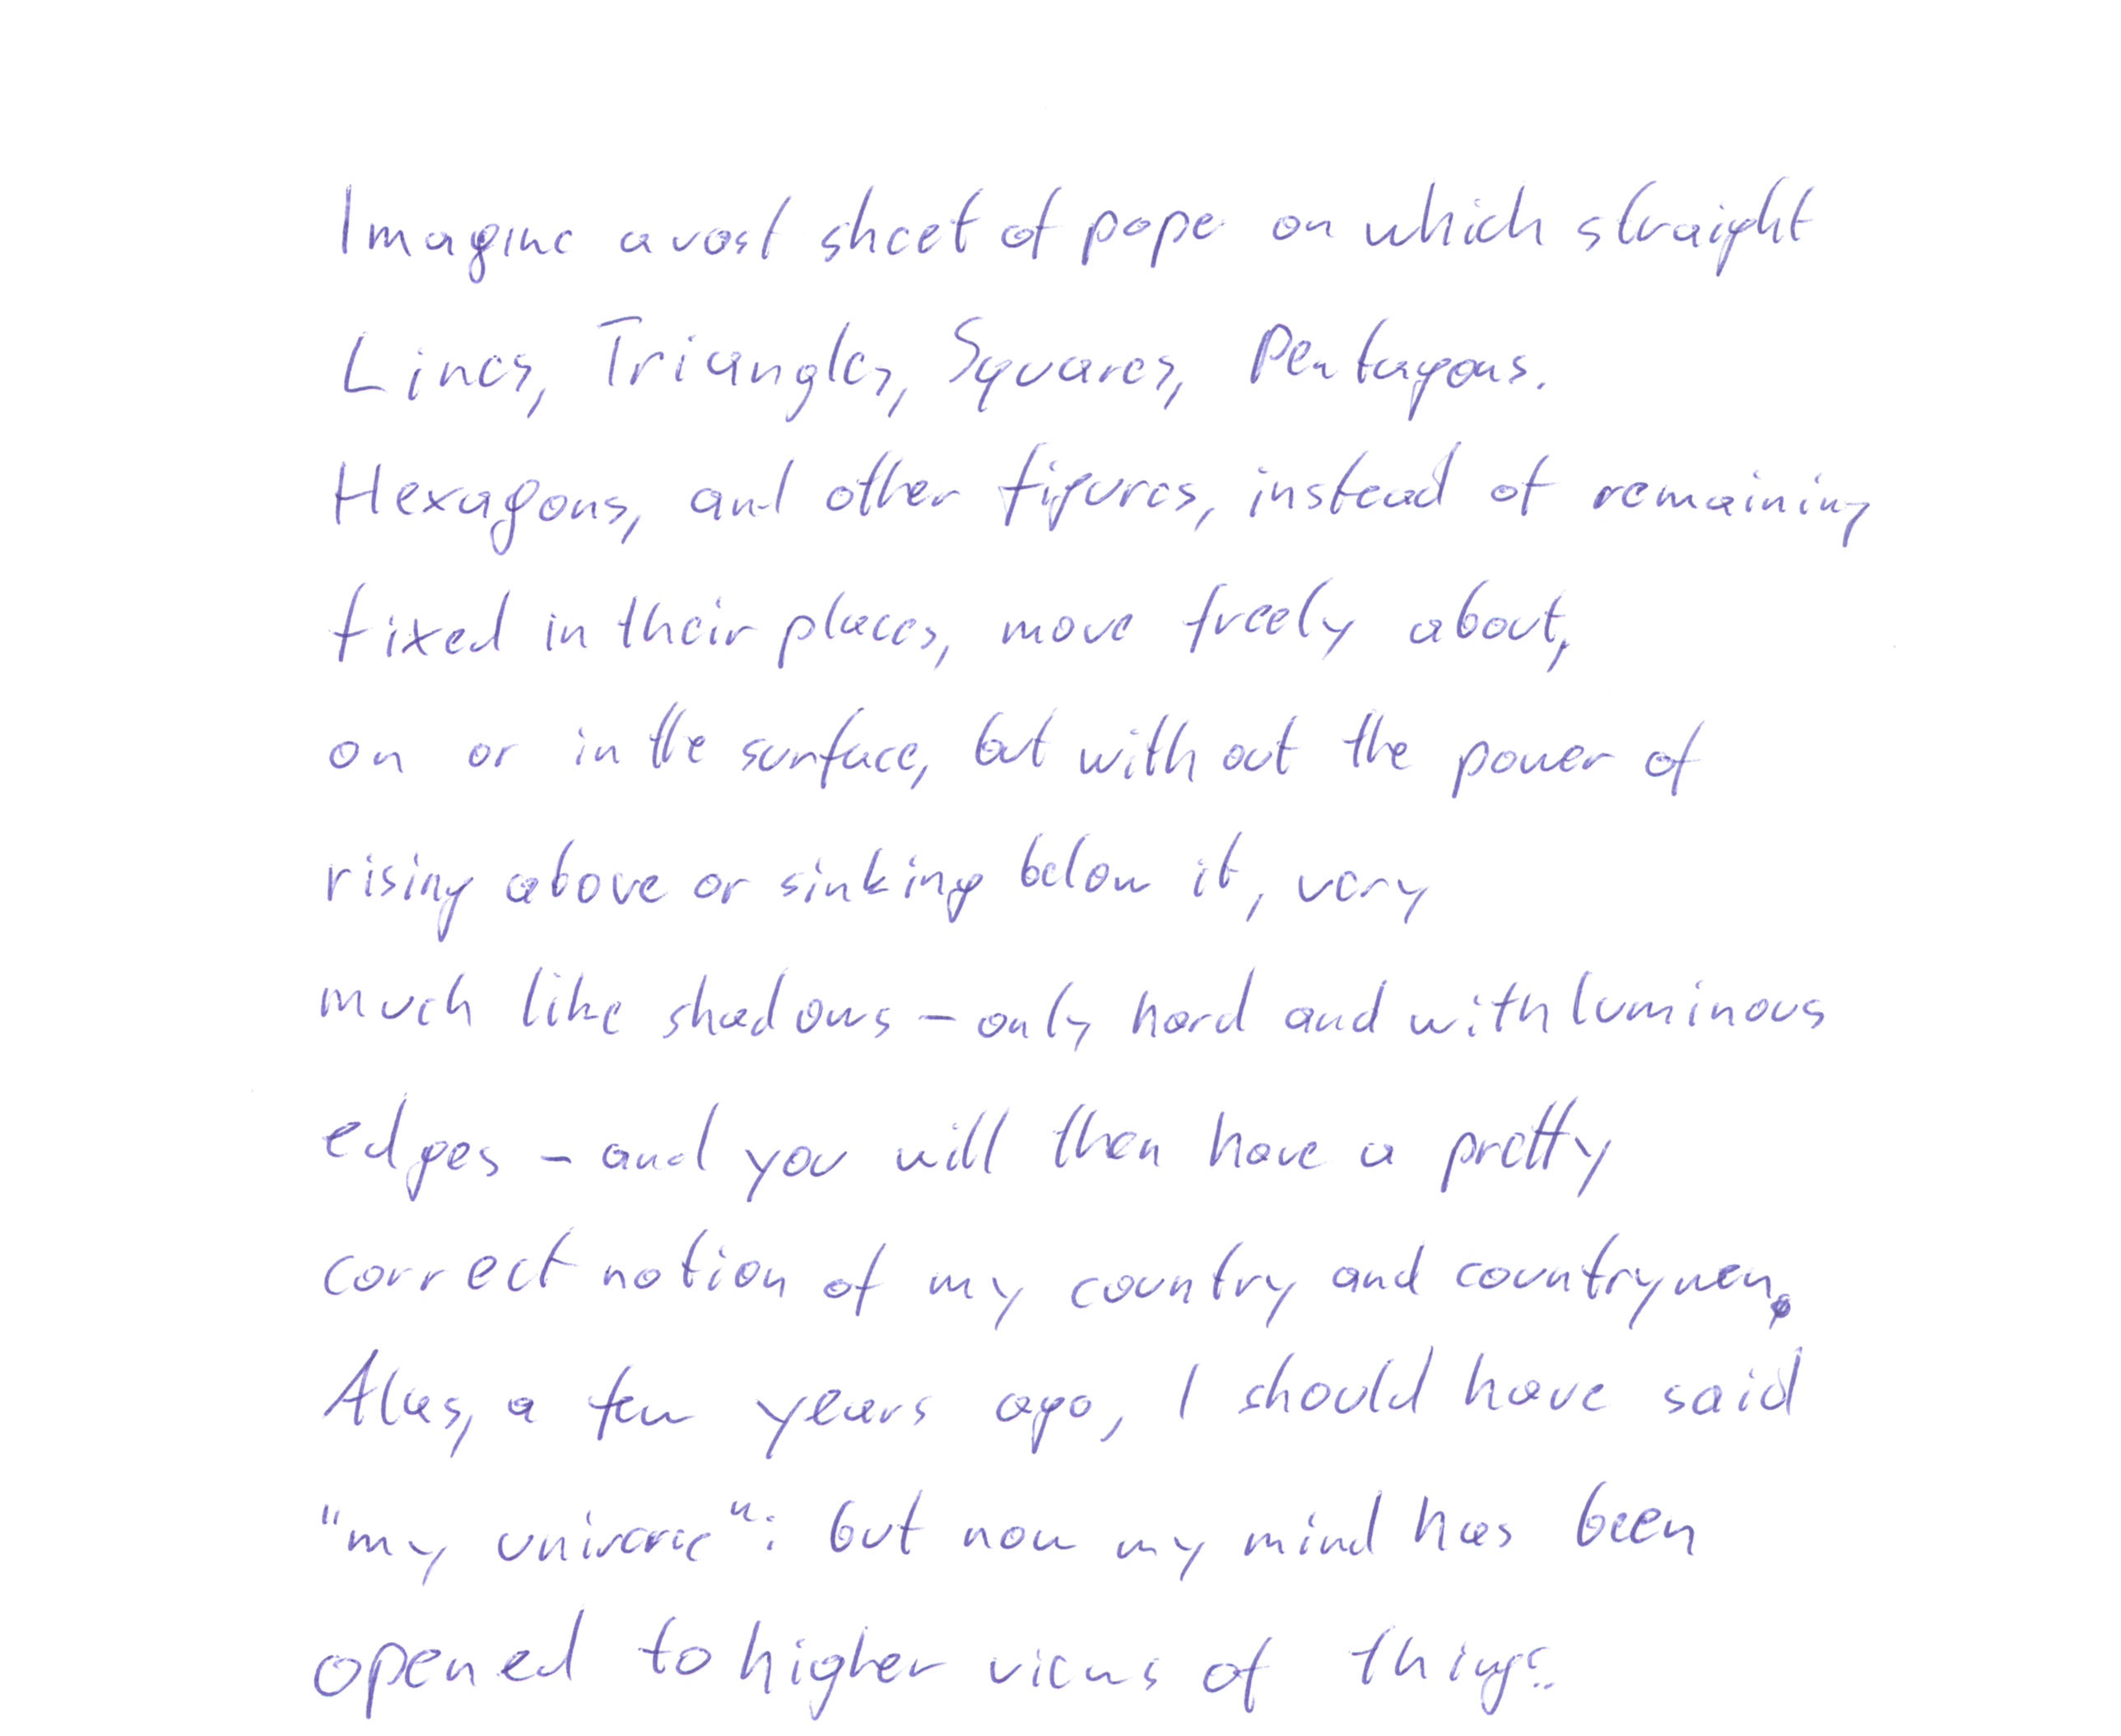 Imagine a vast sheet of pape on which straight
Lines, Triangles, Squares, Pentagons.
Hexagons, and other figures, instead of remaining
fixed in their places, move freely about,
on or in the surface, but without the power of
rising above or sinking below it, very
much like shadows – only hard and with luminous
edges – and you will then have a pretty
correct notion of my country and countrymen.
Alas, a few years ago, I should have said
"my universe": but now my mind has been
opened to higher views of things.